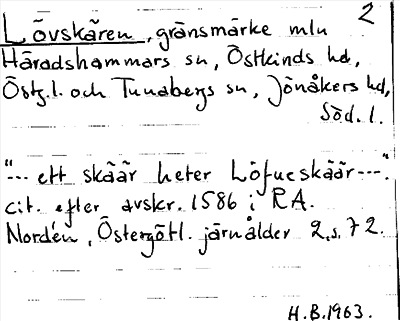 2
Lövskären, gränsmärke mln
Häradshammars sn, Östkinds hd,
Östg.l. och Tunabergs sn, Jönåkers hd,
Söd.l.
"--- ett skäär heter Löfueskäär---".
cit. efter avskr. 1586 i RA.
Nordén, Östergötl. järnålder 2, s. 72.
H.B. 1963.